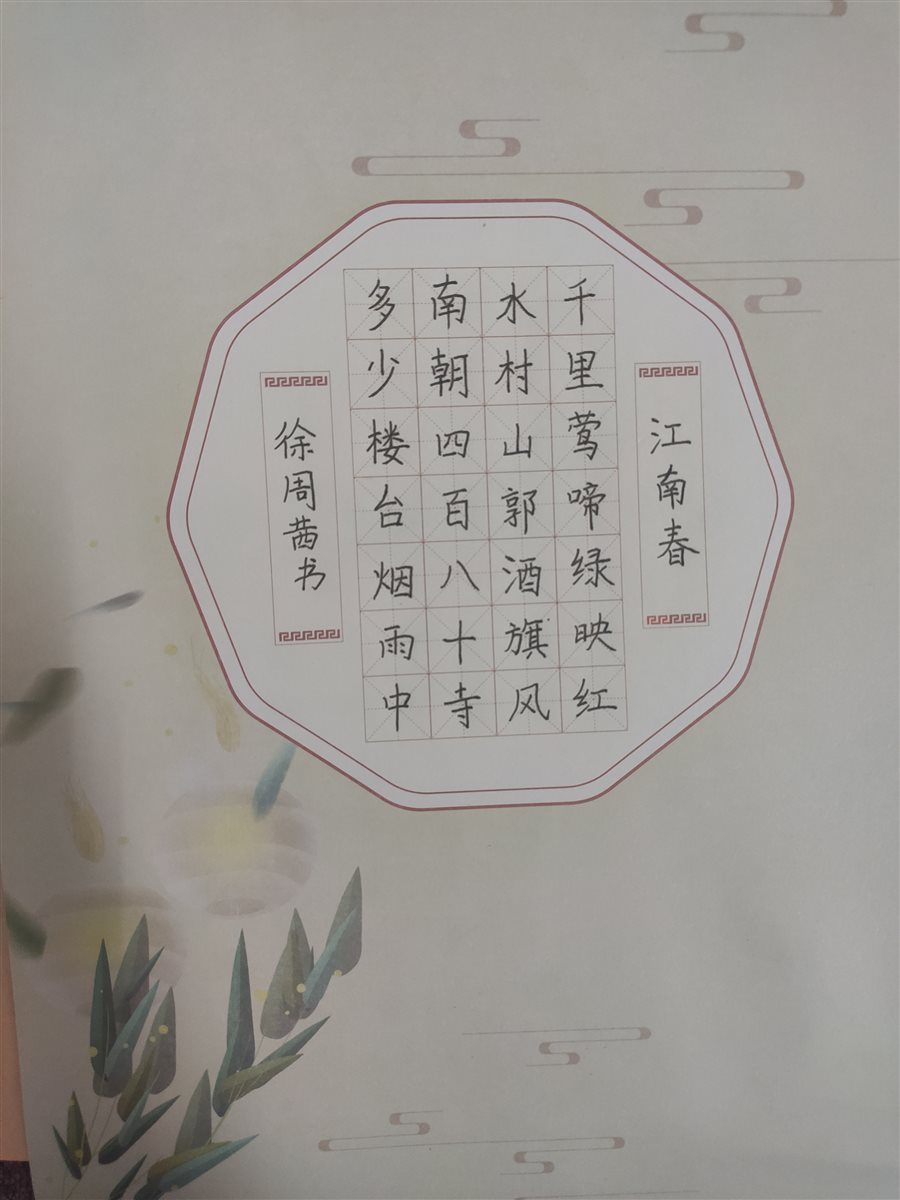 江南春
千里莺啼绿映红
水村山郭酒旗风
南朝四百八十寺
多少楼台烟雨中
徐周茜书